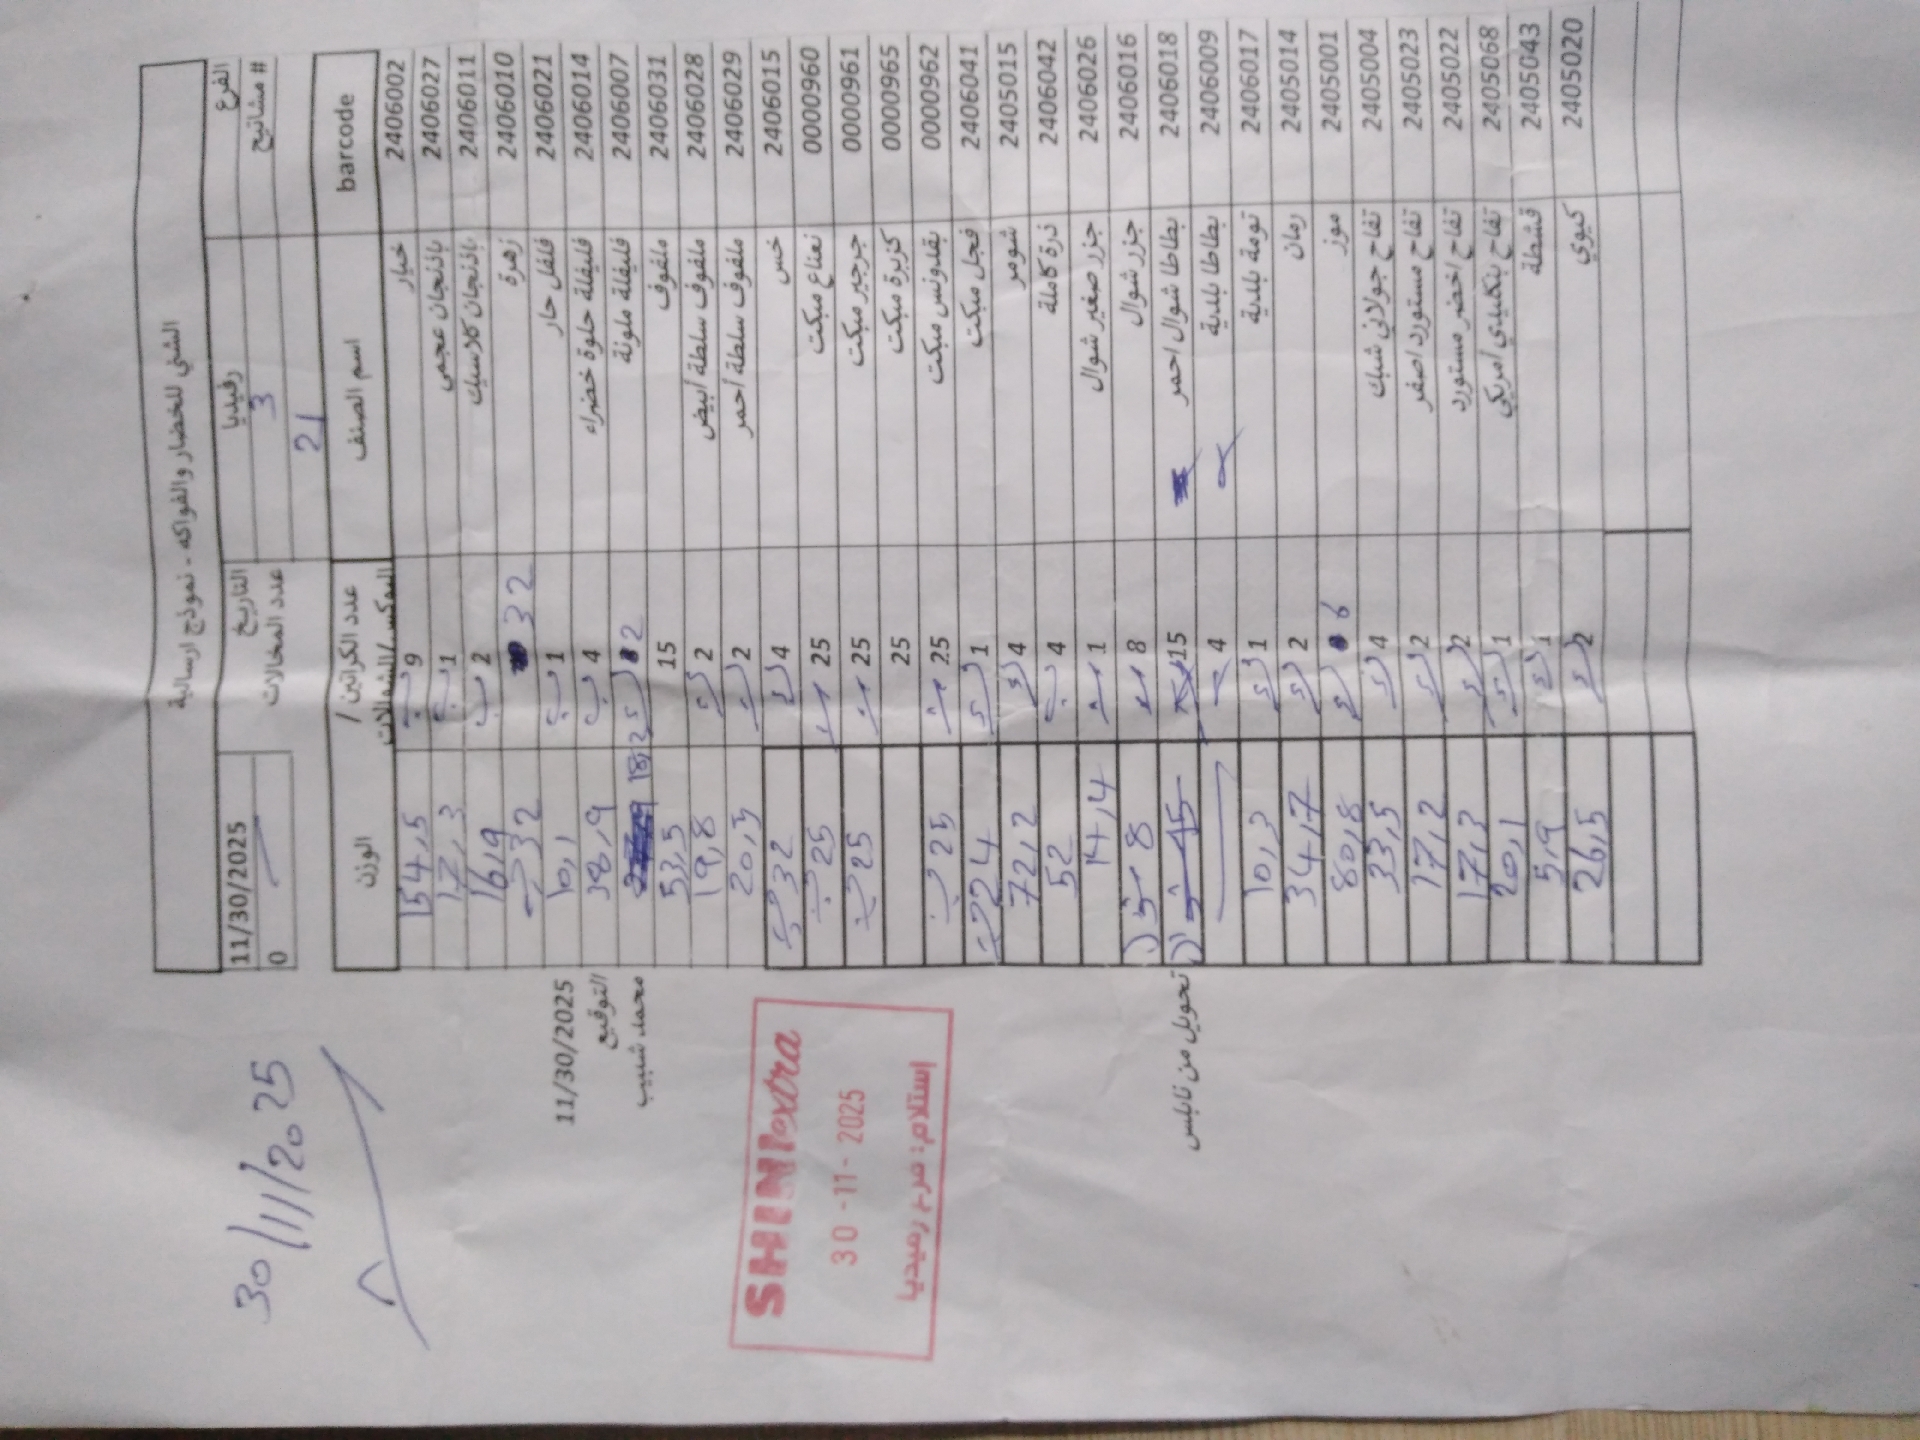 الشني للخضار والفواكه - نموذج ارسالية
الفرع رفيديا التاريخ 11/30/2025
# مشاتيح 3 عدد المخالات 0
21
barcode اسم الصنف عدد الكراتين / البوكس/الشوالات الوزن
2406002 خيار 9 ب 154,5
2406027 باذنجان عجمي 1 ب 17,3
2406011 باذنجان كلاسيك 2 ب 16,9
2406010 زهرة 32 32
2406021 فلفل حار 1 ب 10,1
2406014 فليفلة حلوة خضراء 4 ب 38,9
2406007 فليفلة ملونة 2 18,2
2406031 ملفوف 15 53,5
2406028 ملفوف سلطة ابيض 2 19,8
2406029 ملفوف سلطة احمر 2 20,5
2406015 خس 4 32
0000960 نعناع مبكت 25 25
0000961 جرجير مبكت 25 25
0000965 كزبرة مبكت 25
0000962 بقدونس مبكت 25 25
2406041 فجل مبكت 1 24
2405015 شومر 4 72,2
2406042 ذرة كاملة 4 ب 52
2406026 جزر صغير شوال 1 14,4
2406016 جزر شوال 8 8
2406018 بطاطا شوال احمر 15 15
2406009 بطاطا بلدية 4
2406017 تومة بلدية 1 10,3
2405014 رمان 2 34,7
2405001 موز 6 80,8
2405004 تفاح جولاني شبك 4 33,5
2405023 تفاح مستورد اصفر 2 17,2
2405022 تفاح اخضر مستورد 2 17,3
2405068 تفاح بنكليدي امريكي 1 20,1
2405043 قشطة 1 5,9
2405020 كيوي 2 26,5
30/11/2025
11/30/2025
التوقيع
محمد شبيب
SHINI extra
30 -11- 2025
تحويل من نابلس